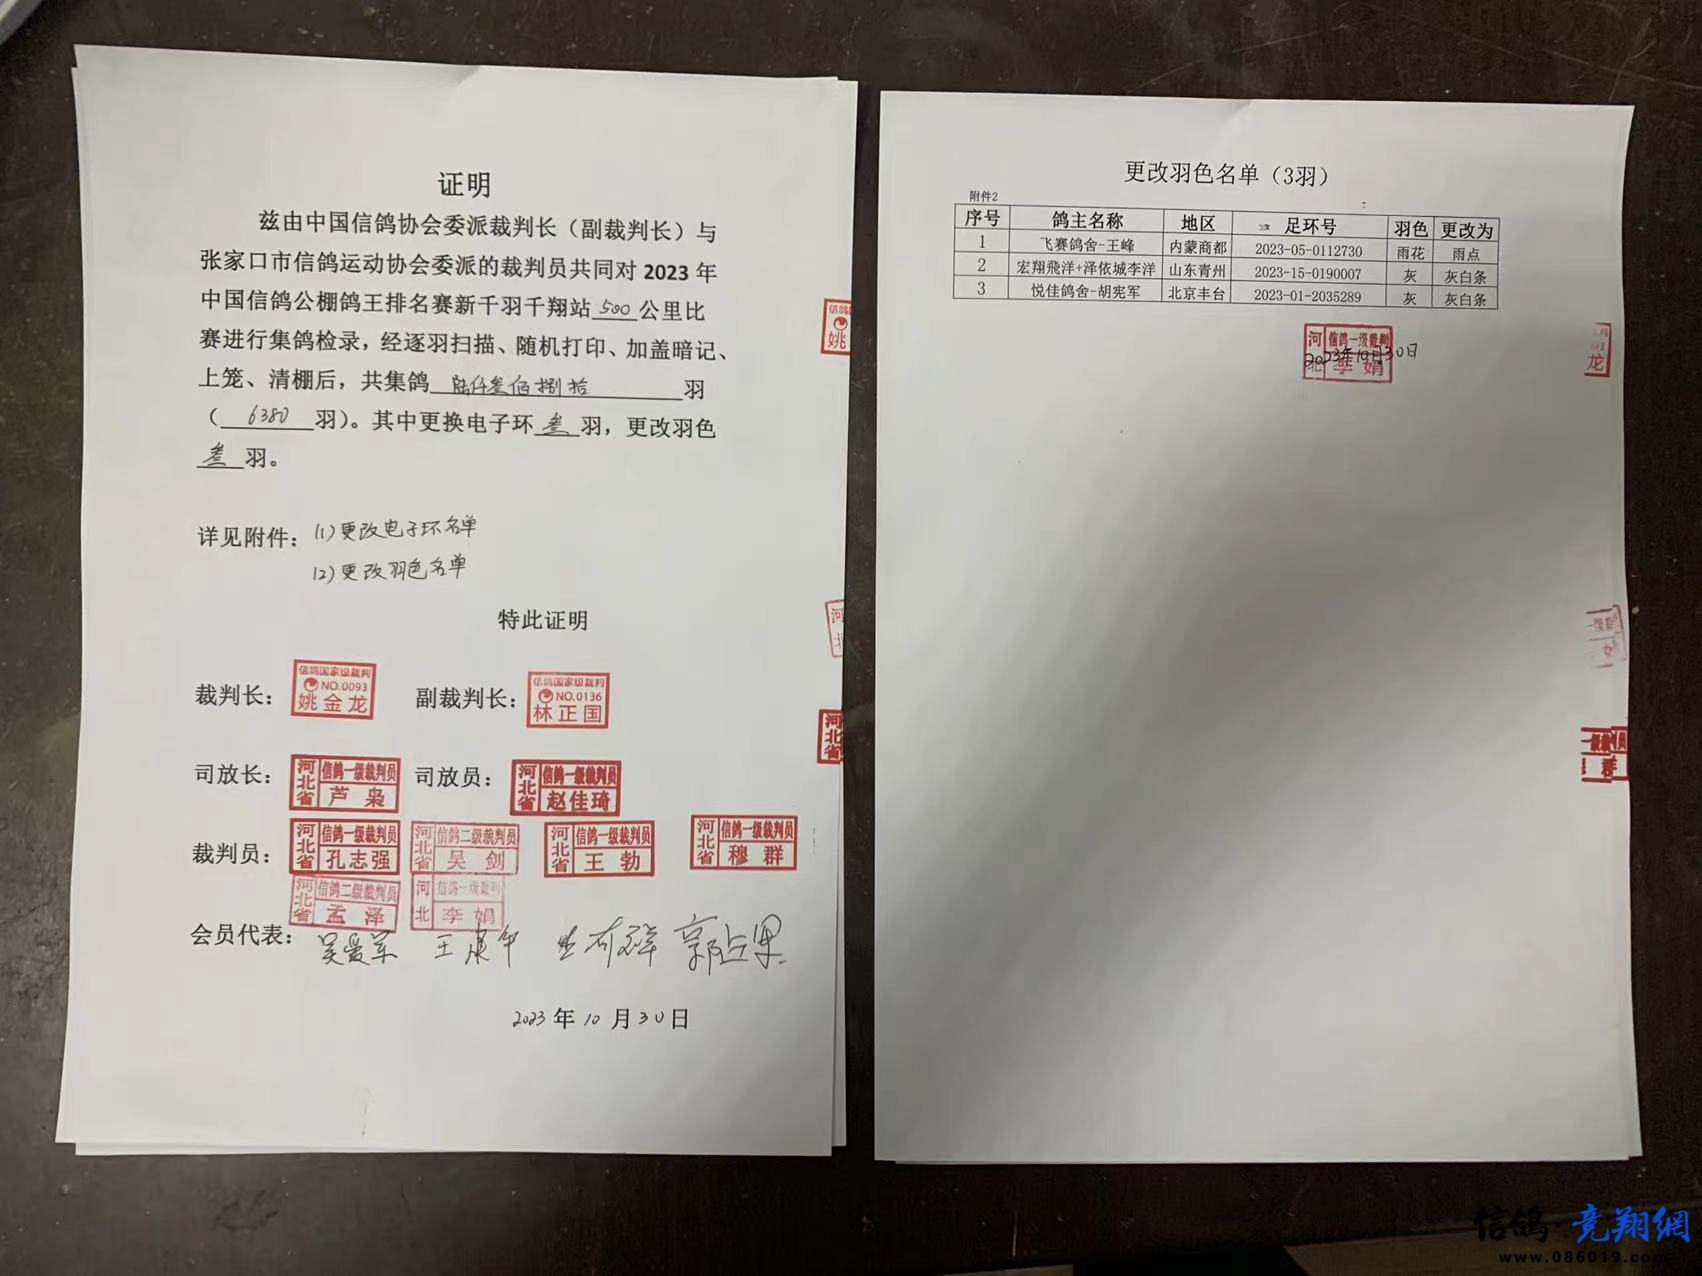 证明
兹由中国信鸽协会委派裁判长（副裁判长）与
张家口市信鸽运动协会委派的裁判员共同对 2023 年
中国信鸽公棚鸽王排名赛新千羽千翔站 500 公里比
赛进行集鸽检录，经逐羽扫描、随机打印、加盖暗记、
上笼、清棚后，共集鸽 陆仟叁佰捌拾 羽
（ 6380 羽）。其中更换电子环 叁 羽，更改羽色
叁 羽。
详见附件：(1)更改电子环名单
(2)更改羽色名单
特此证明
裁判长： 信鸽国家级裁判 NO.0093 姚金龙 副裁判长： 信鸽国家级裁判 NO.0136 林正国
司放长： 河北省 信鸽一级裁判员 芦枭 司放员： 河北省 信鸽一级裁判员 赵佳琦
裁判员： 河北省 信鸽一级裁判员 孔志强 河北省 信鸽二级裁判员 吴剑 河北省 信鸽一级裁判员 王勃 河北省 信鸽一级裁判员 穆群
河北省 信鸽二级裁判员 孟泽 河北 信鸽一级裁判 李娟
会员代表： 吴爱军
2023 年 10 月 30 日
信鸽
姚
河北
河北省
更改羽色名单（3羽）
附件2
序号 鸽主名称 地区 足环号 羽色 更改为
1 飞赛鸽舍-王峰 内蒙商都 2023-05-0112730 雨花 雨点
2 宏翔飛洋+泽依城李洋 山东青州 2023-15-0190007 灰 灰白条
3 悦佳鸽舍-胡宪军 北京丰台 2023-01-2035289 灰 灰白条
河北 信鸽一级裁判 李娟
2023年10月30日
龙
群
信鸽·竞翔網
www.086019.com